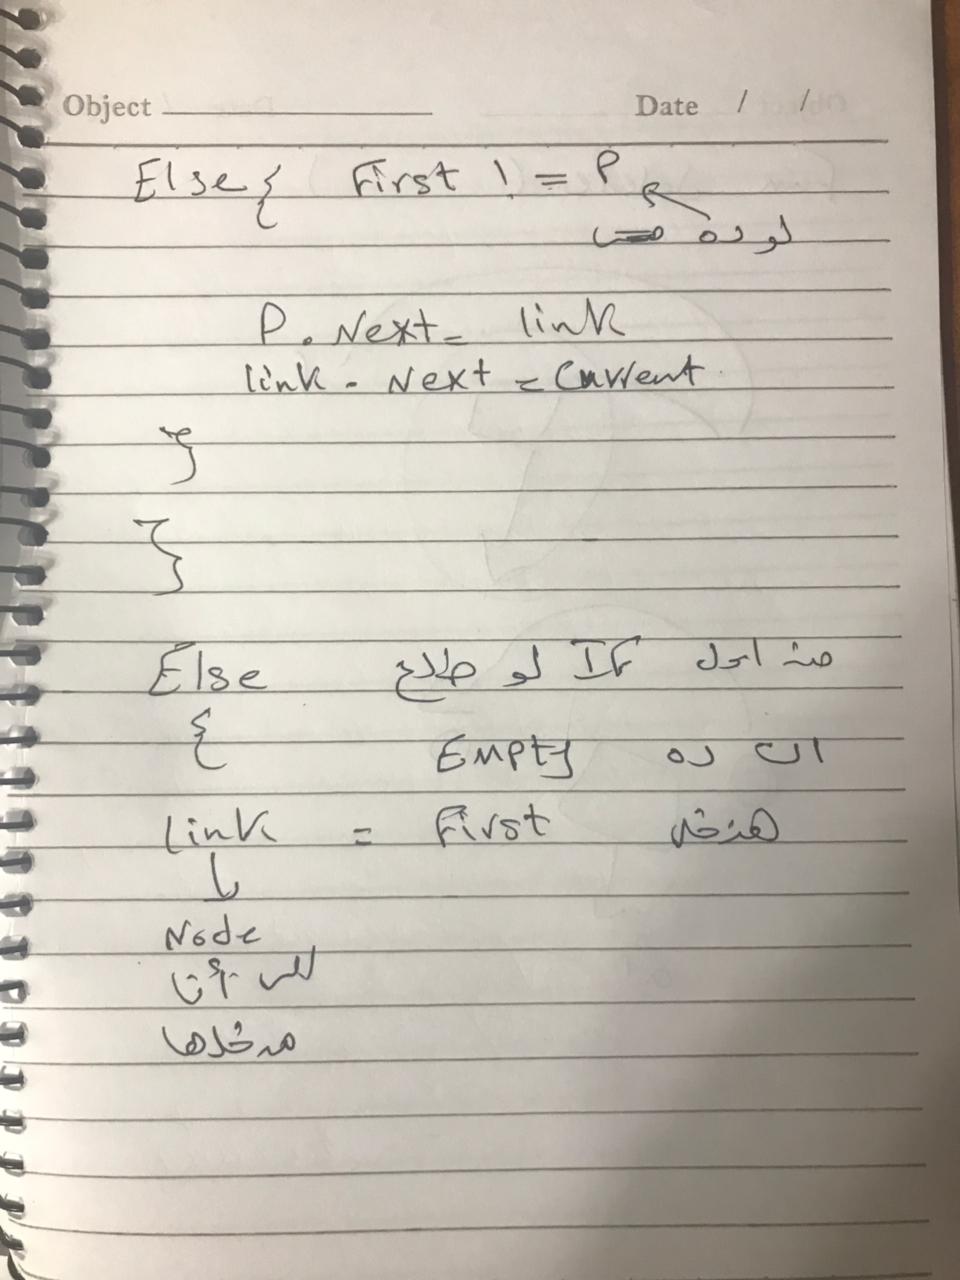 Object Date / /
Else { First != P
لو ده مش
P. Next = link
link - Next = Current
}
}
Else منه اول IF لو طلع
{ Empty ان ده
Link = First هندخل
Node
اللى
مدخلها